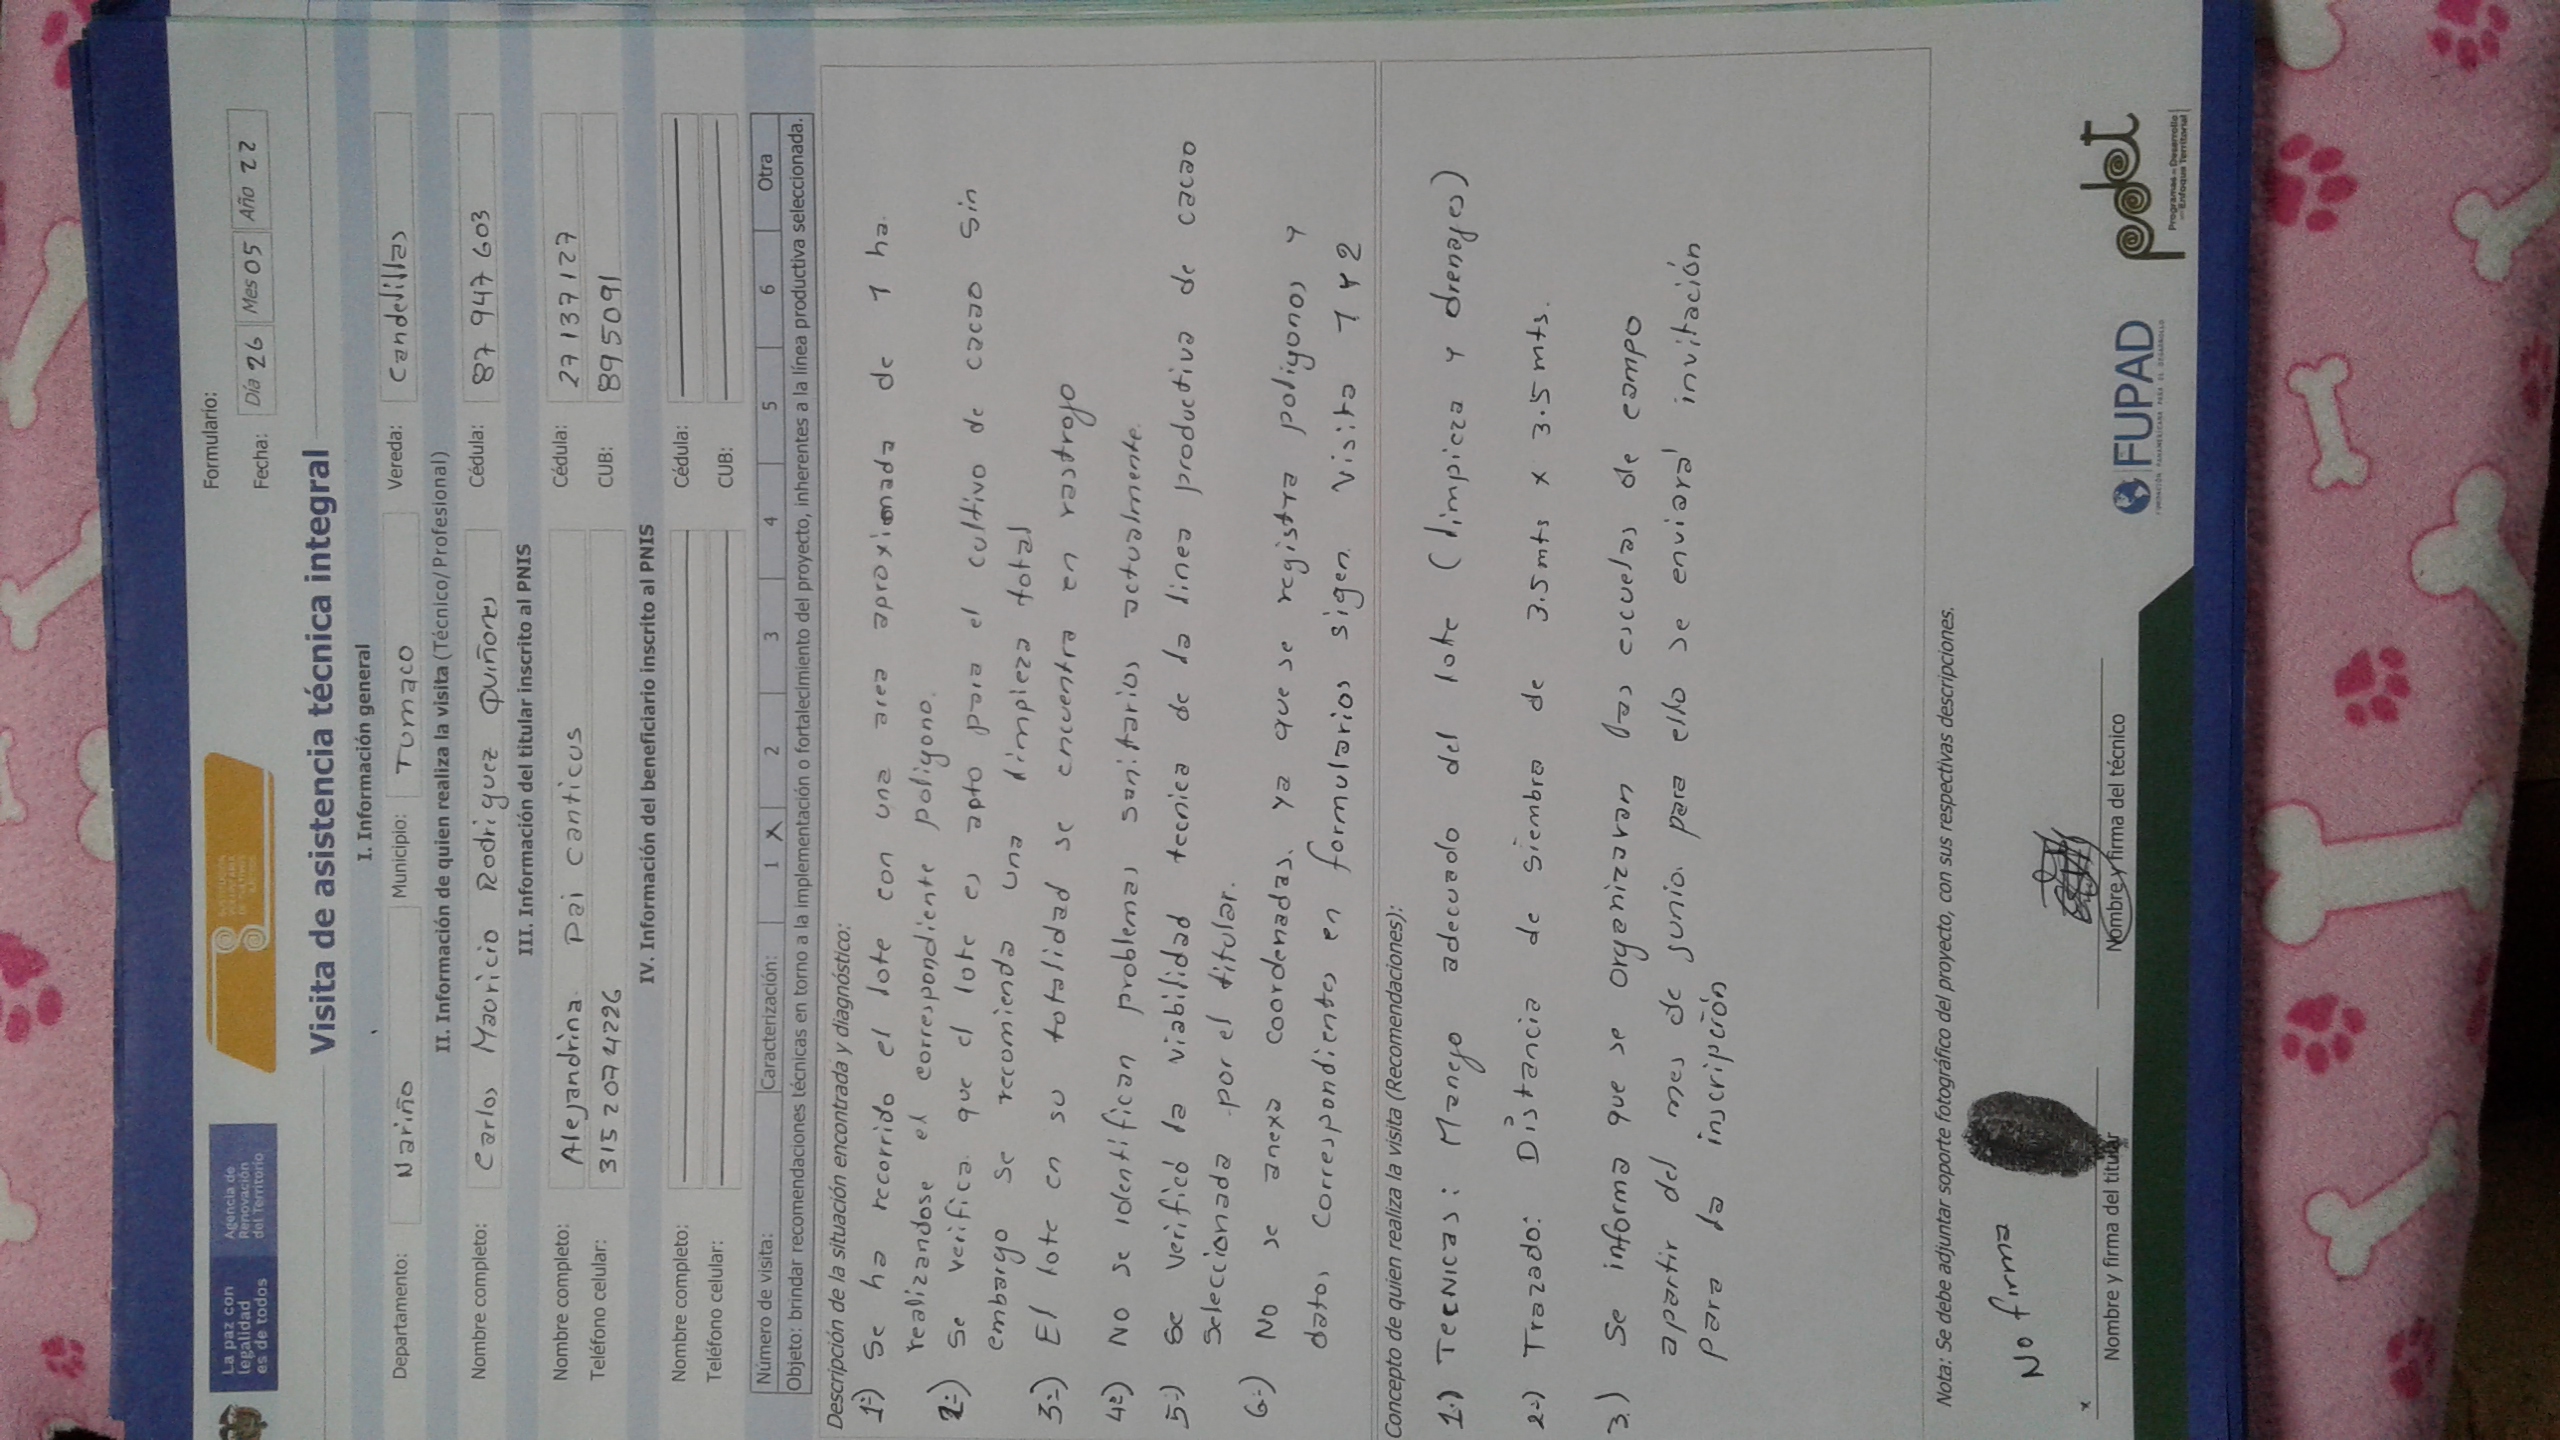 La paz con
legalidad
es de todos
Agencia de
Renovación
del Territorio
Formulario:
Fecha: Día 26 Mes 05 Año 22
Visita de asistencia técnica integral
I. Información general
Departamento: Nariño Municipio: Tumaco Vereda: Candelillas
II. Información de quien realiza la visita (Técnico/Profesional)
Nombre completo: Carlos Mauricio Rodriguez Quiñones Cédula: 87 947 603
III. Información del titular inscrito al PNIS
Nombre completo: Alejandrina Pai Canticus Cédula: 27 137 127
Teléfono celular: 315 207 4226 CUB: 895091
IV. Información del beneficiario inscrito al PNIS
Nombre completo: Cédula:
Teléfono celular: CUB:
Número de visita: Caracterización: 1 X 2 3 4 5 6 Otra
Objeto: brindar recomendaciones técnicas en torno a la implementación o fortalecimiento del proyecto, inherentes a la línea productiva seleccionada.
Descripción de la situación encontrada y diagnóstico:
1-) Se ha recorrido el lote con una area aproximada de 1 ha.
realizandose el correspondiente poligono.
2-) Se verifica que el lote es apto para el cultivo de cacao sin
embargo se recomienda una limpieza total
3-) El lote en su totalidad se encuentra en rastrojo
4-) No se identifican problemas sanitarios actualmente.
5-) Se verificó la viabilidad tecnica de la linea productiva de cacao
Seleccionada por el titular.
6-) No se anexa coordenadas, ya que se registra poligonos y
datos correspondientes en formularios sigen. Visita 1 y 2
Concepto de quien realiza la visita (Recomendaciones):
1-) TECNICAS: Manejo adecuado del lote (limpieza y drenajes)
2-) Trazado: Distancia de siembra de 3.5mts x 3.5mts.
3) Se informa que se organizaran las escuelas de campo
apartir del mes de junio. para ello se enviará invitación
para la inscripción
Nota: Se debe adjuntar soporte fotográfico del proyecto, con sus respectivas descripciones.
No firma
x
Nombre y firma del titular
Nombre y firma del técnico
FUPAD
FUNDACIÓN PANAMERICANA PARA EL DESARROLLO
pdet
Programas de Desarrollo
con Enfoque Territorial